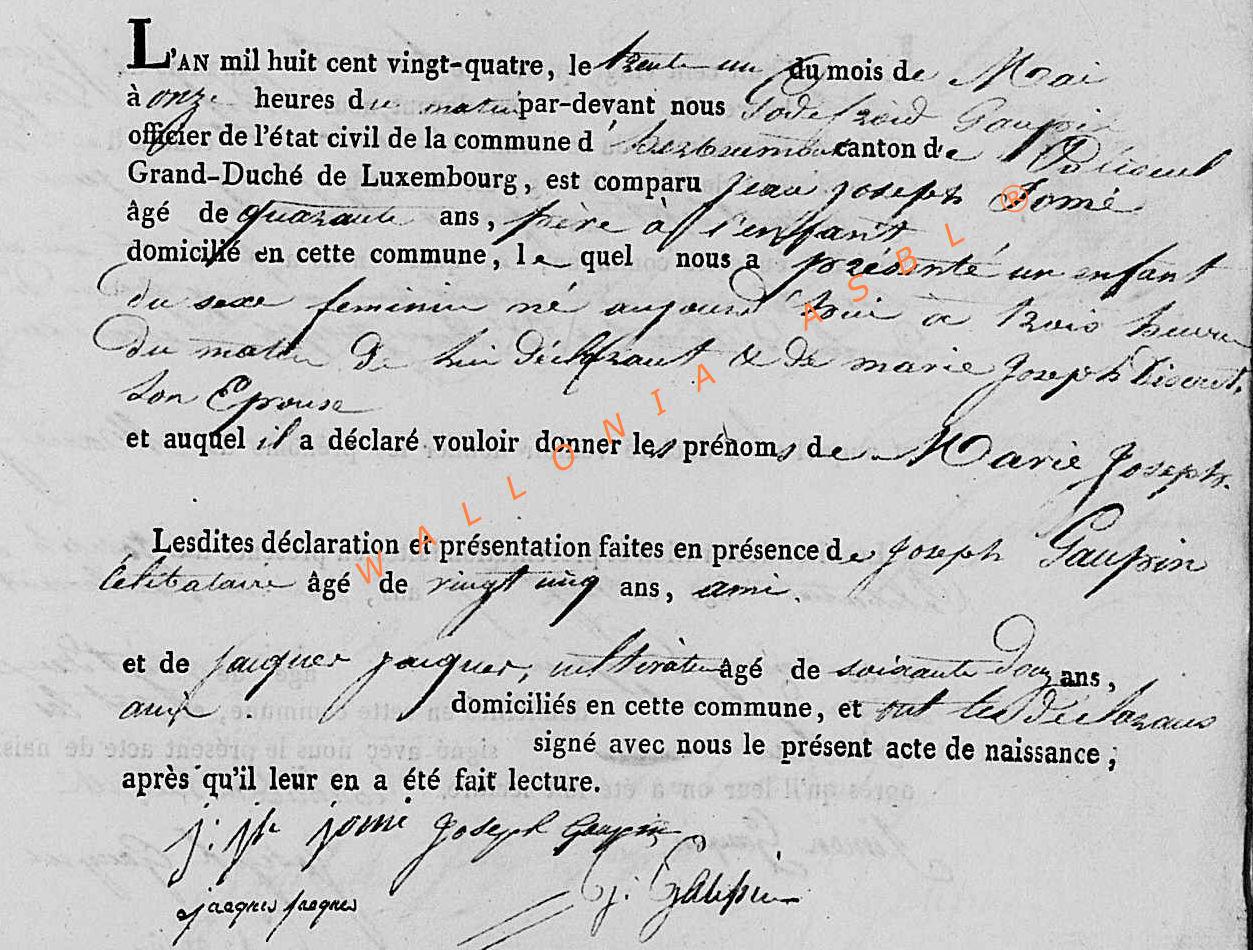 L'AN mil huit cent vingt-quatre, le trente un du mois de Mai
à onze heures du matin par-devant nous Godefroid Gaupin
officier de l'état civil de la commune d'herbeumont canton de Paliseul
Grand-Duché de Luxembourg, est comparu jean joseph Jomé
âgé de quarante ans, père à l'enfant
domicilié en cette commune, le quel nous a présenté un enfant
du sexe feminin né aujourd'hui à trois heures
du matin de lui déclarant & de marie joseph
son Epouse
et auquel il a déclaré vouloir donner les prénoms de Marie Joseph.
Lesdites déclaration et présentation faites en présence de joseph Gaupin
Celibataire âgé de vingt cinq ans, ami.
et de jacques jacques, cultivateur âgé de soixante douze ans,
ami. domiciliés en cette commune, et ont les déclarans
signé avec nous le présent acte de naissance ;
après qu'il leur en a été fait lecture.
j: jh jomé joseph Gaupin
jacques jacques G: Gaupin
WALLONIA ASBL ®